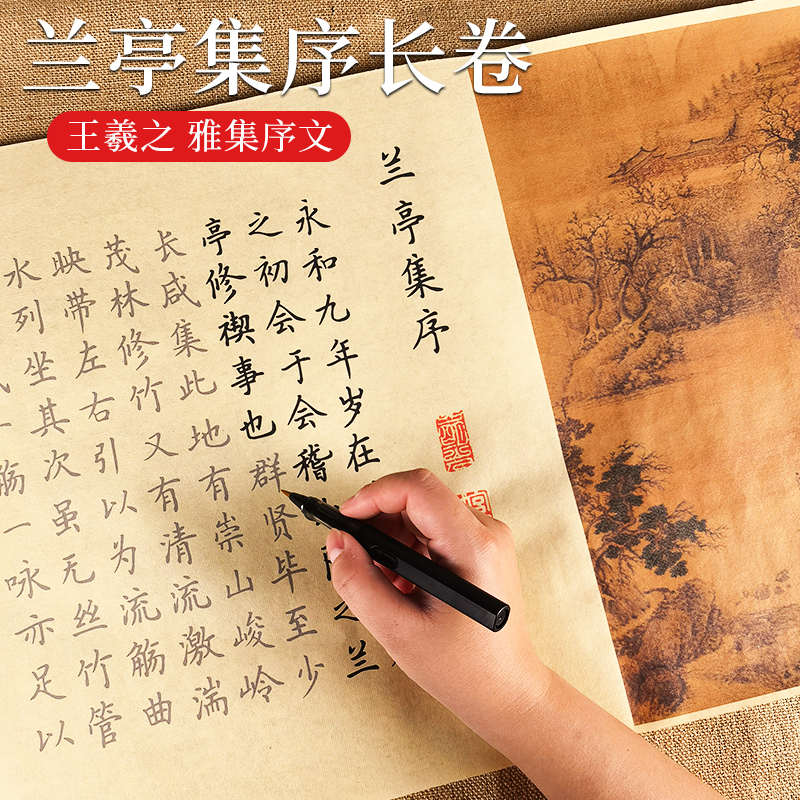 兰亭集序长卷
王羲之 雅集序文
兰亭集序
永和九年岁在
之初会于会稽 之兰
亭修禊事也群贤毕至少
长咸集此地有崇山峻岭
茂林修竹又有清流激湍
映带左右引以为流觞曲
水列坐其次虽无丝竹管
一觞一咏亦足以